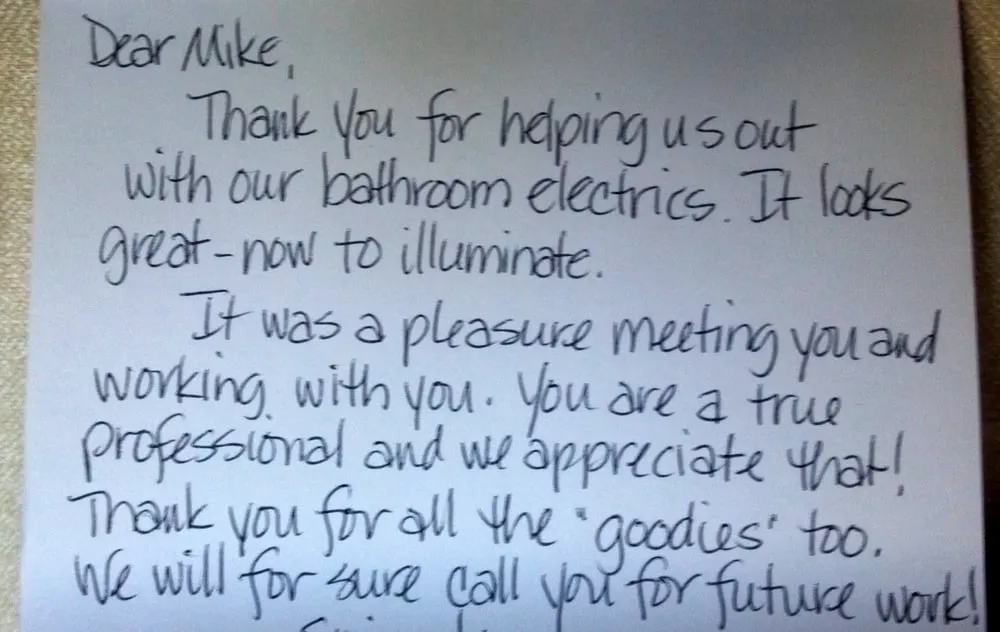 Dear Mike,
Thank you for helping us out
with our bathroom electrics. It looks
great - now to illuminate.
It was a pleasure meeting you and
working with you. You are a true
professional and we appreciate that!
Thank you for all the "goodies" too.
We will for sure call you for future work!